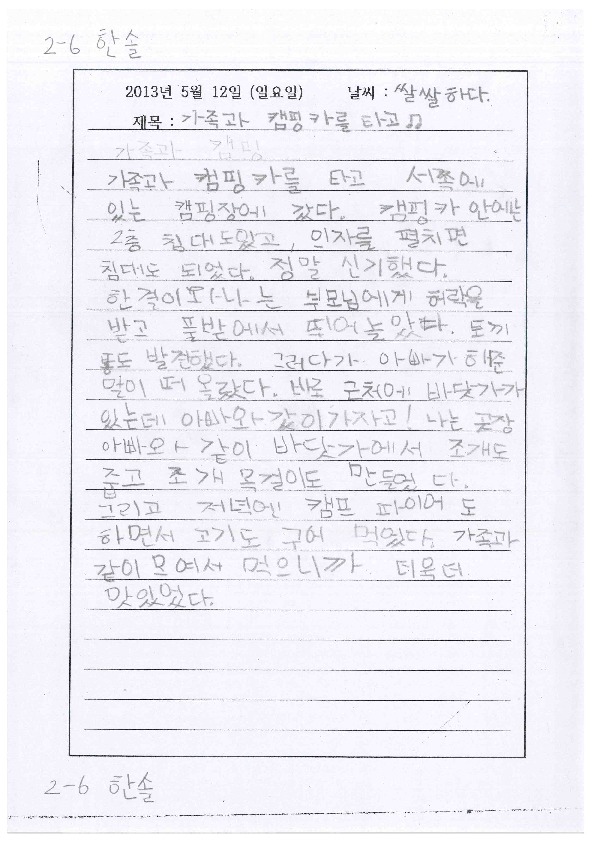 2-6 한솔
2013년 5월 12일 (일요일) 날씨 : 쌀쌀하다.
제목 : 가족과 캠핑카를 타고♫
가족과 캠핑
가족과 캠핑카를 타고 서쪽에
있는 캠핑장에 갔다. 캠핑카 안에는
2층 침대도 있고, 의자를 펼치면
침대도 되었다. 정말 신기했다.
한결이와 나는 부모님에게 허락을
받고 풀밭에서 뛰어놀았다. 토끼
똥도 발견했다. 그러다가 아빠가 해준
말이 떠올랐다. 바로 근처에 바닷가가
있는데 아빠와 같이 가자고! 나는 곧장
아빠와 같이 바닷가에서 조개도
줍고 조개 목걸이도 만들었다.
그리고 저녁엔 캠프 파이어도
하면서 고기도 구어 먹었다. 가족과
같이 모여서 먹으니까 더욱더
맛있었다.
2-6 한솔